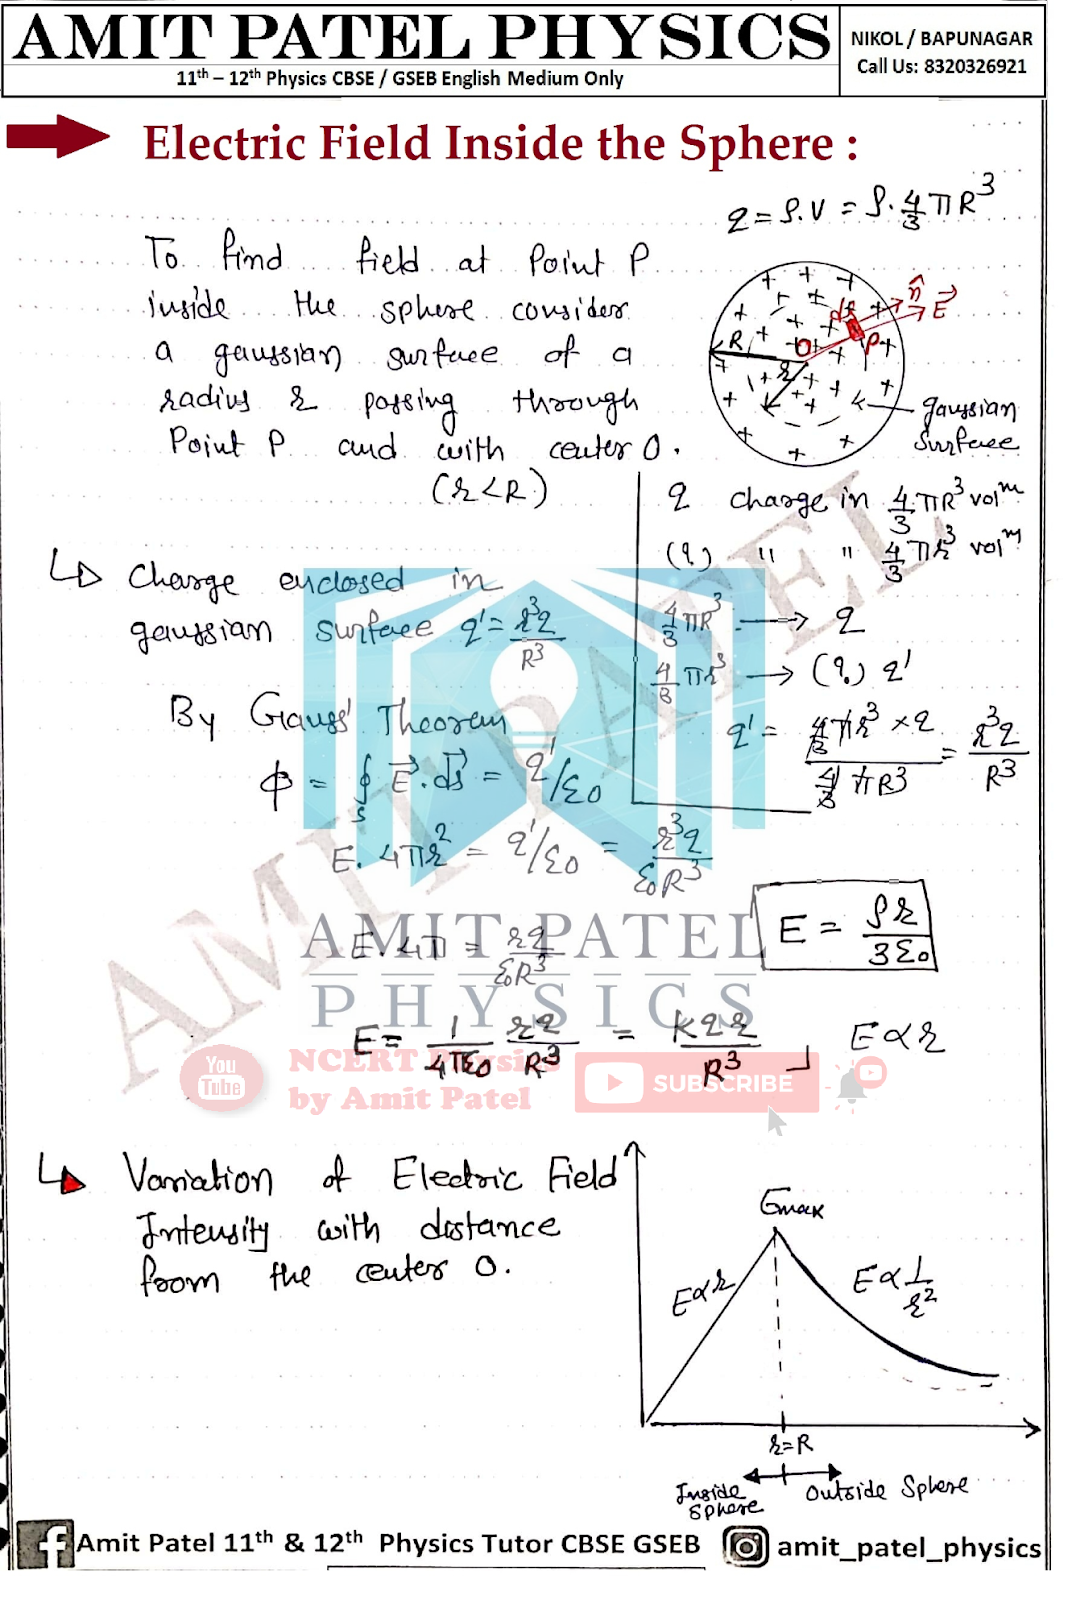 AMIT PATEL PHYSICS
11th – 12th Physics CBSE / GSEB English Medium Only
NIKOL / BAPUNAGAR
Call Us: 8320326921
Electric Field Inside the Sphere :
q = ρ.V = ρ. 4/3 πR³
To find field at Point P
inside the sphere consider
a gaussian surface of a
radius r passing through
Point P and with center O.
(r<R)
R
O
r
ds
n̂
E⃗
P
gaussian
surface
q charge in 4/3 πR³ volm
(?) " " 4/3 πr³ volm
4/3 πR³ → q
4/3 πr³ → (?) q'
q' = 4/3 πr³ × q / 4/3 πR³ = r³q / R³
↳ Charge enclosed in
gaussian surface q' = r³q / R³
By Gauss' Theorem
ϕ = ∮s E⃗.ds⃗ = q'/ε0
E. 4πr² = q'/ε0 = r³q / ε0R³
E. 4π = rq / ε0R³
E = ρr / 3ε0
E = 1/4πε0 rq/R³ = kqr/R³
E ∝ r
AMIT PATEL
AMIT PATEL
PHYSICS
You
Tube
NCERT Physics
by Amit Patel
SUBSCRIBE
↳ Variation of Electric Field
Intensity with distance
from the center O.
Emax
E∝r
E∝1/r²
r=R
Inside
Sphere
Outside Sphere
Amit Patel 11th & 12th Physics Tutor CBSE GSEB
amit_patel_physics